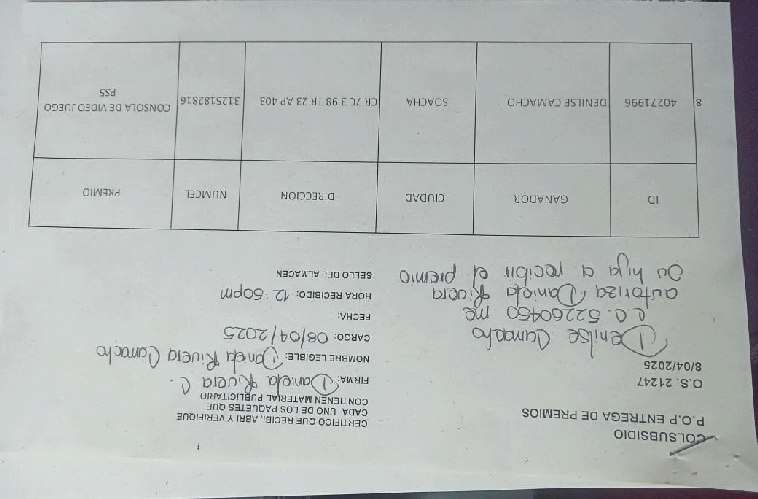 COLSUBSIDIO
P.O.P ENTREGA DE PREMIOS
O.S. 21247
8/04/2025
Denilse Camacho
C.C. 52260450 me
autoriza Daniela Rivera
su hija a recibir el premio
CERTIFICO QUE RECIBI, ABRI Y VERIFIQUE
CADA UNO DE LOS PAQUETES QUE
CONTIENEN MATERIAL PUBLICITARIO
FIRMA: Daniela Rivera C.
NOMBRE LEGIBLE: Daniela Rivera Camacho
CARGO: 08/04/2025
FECHA:
HORA RECIBIDO: 12:50pm
SELLO DEL ALMACEN
ID GANADOR CIUDAD DIRECCION NUMCEL PREMIO
8 40271996 DENILSE CAMACHO SOACHA AP 403 3125183816 CONSOLA DE VIDEO JUEGO
PS5